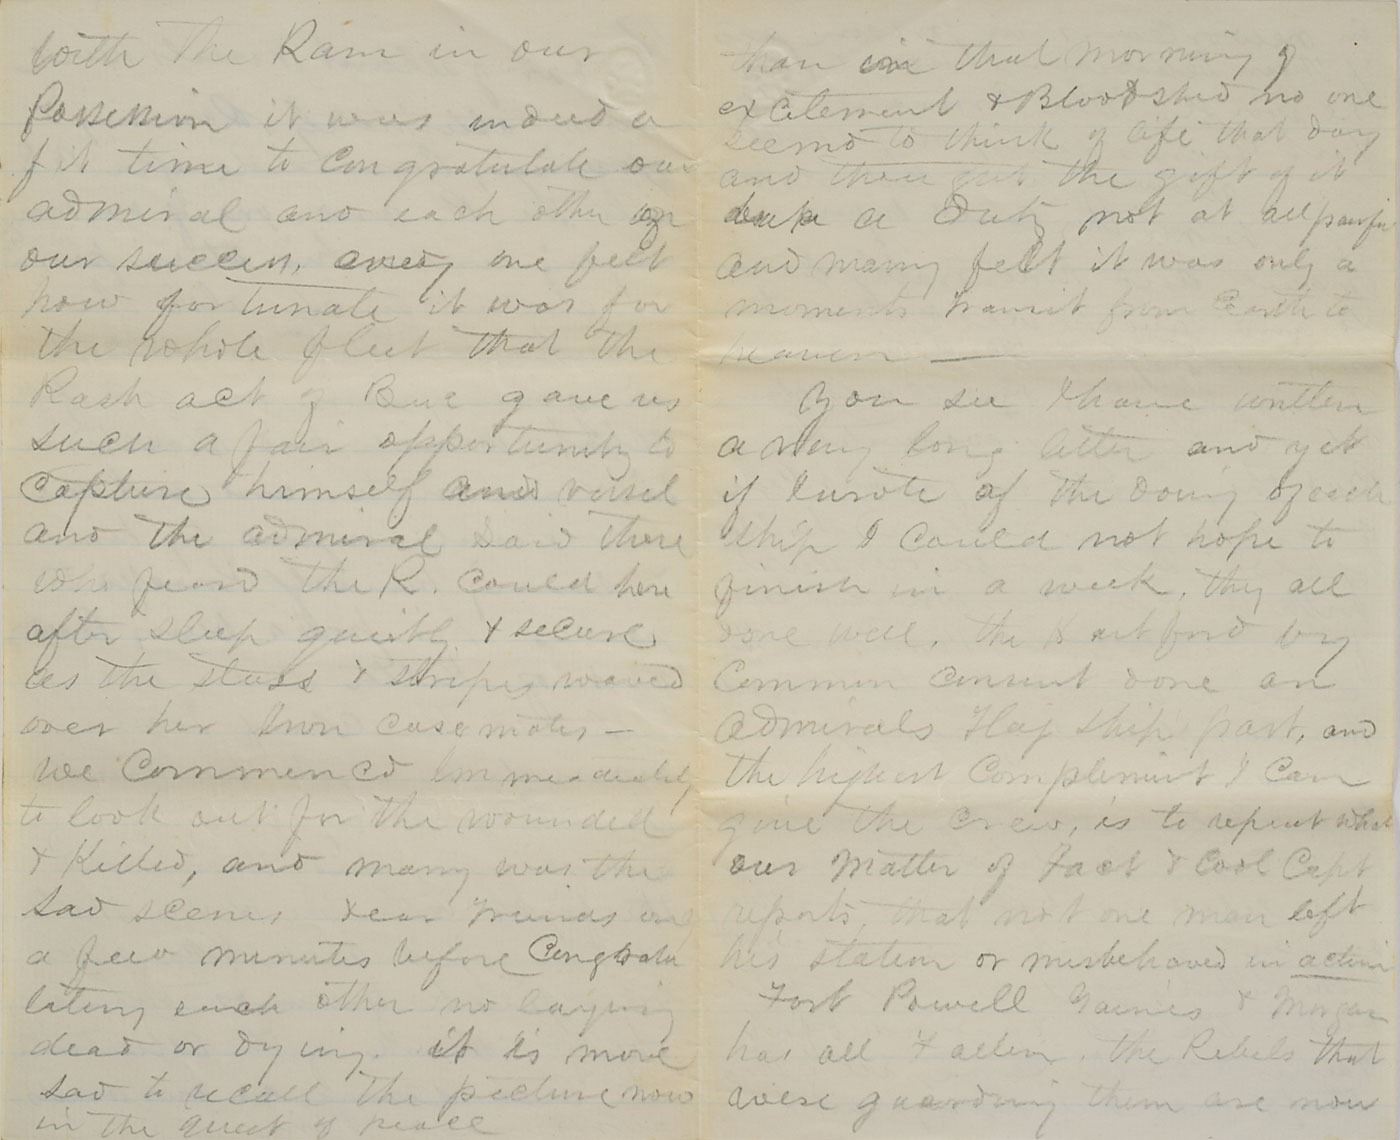 with the Ram in our
Possession it was indeed a
fit time to Congratulate our
admiral and each other on
our success, every one felt
how fortunate it was for
the whole fleet that the
Rash act of Buc gave us
such a fair opportunity to
Capture himself and vessel
and the admiral said those
who feard the R. Could here
after sleep quietly & secure
as the Stars & stripes waved
over her Iron casemates —
we Commenced Immeadiatly
to look out for the wounded
& Killed, and many was the
sad scenes dear friends only
a few minutes before Congratu
lating each other no laying
dead or dying. it is more
sad to recall the picture now
in the quiet of peace
than in that morning of
excitement & Bloodshed no one
seemd to think of life that day
and the gift of it
a Duty not at all painful
and many felt it was only a
moments transit from Earth to
heaven —
You see I have written
a very long letter and yet
if I wrote of the doing of each
ship I Could not hope to
finish in a week, they all
done well, the Hartford by
Common consent done an
Admirals Flag ship part, and
the highest Complement I Can
give the crew, is to repeat what
our Matter of Fact & Cool Capt
reports, that not one man left
his station or misbehaved in action
Fort Powell Gaines & Morgan
has all Fallen, the Rebels that
were guarding them are now